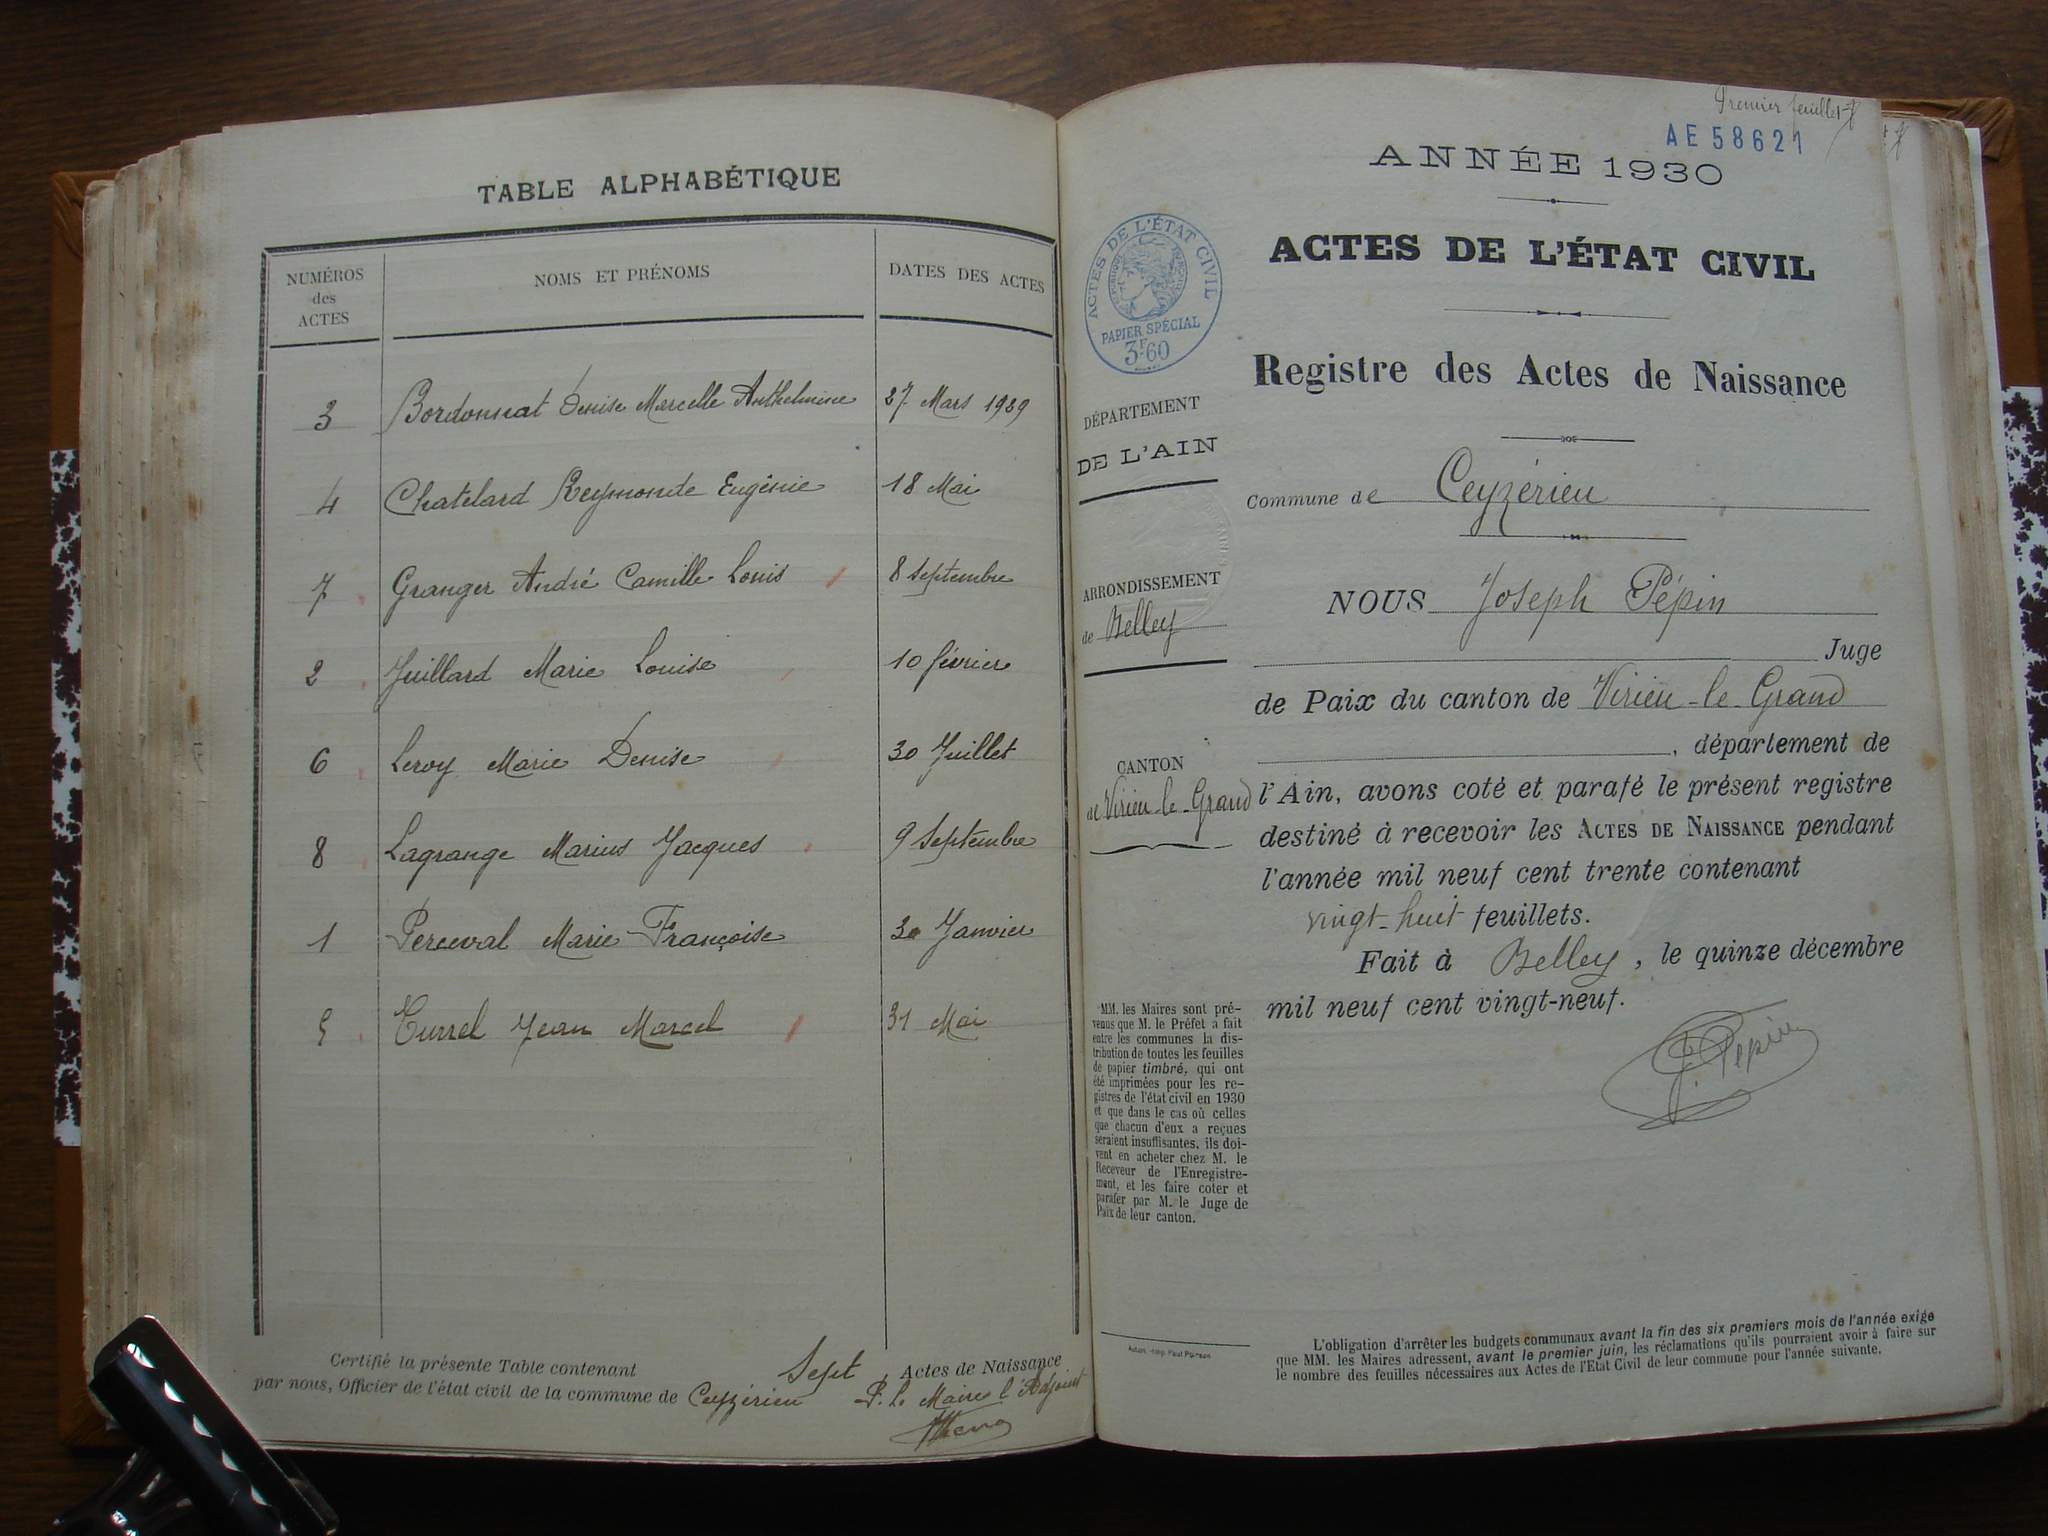 TABLE ALPHABÉTIQUE
NUMÉROS des ACTES
NOMS ET PRÉNOMS
DATES DES ACTES
3 Bordonnat Denise Marcelle Anthelmine 27 Mars 1929
4 Chatelard Reymonde Eugénie 18 Mai
7 Granger André Camille Louis 8 Septembre
2 Juillard Marie Louise 10 février
6 Leroy Marie Denise 30 Juillet
8 Lagrange Marius Jacques 9 Septembre
1 Perceval Marie Françoise 30 Janvier
5 Turrel Jean Marcel 31 Mai
Certifié la présente Table contenant Sept Actes de Naissance
par nous, Officier de l'état civil de la commune de Ceyzérieu P. le Maire l'Adjoint
Premier feuillet
AE 58621
ANNÉE 1930
ACTES DE L'ÉTAT CIVIL
Registre des Actes de Naissance
ACTES DE L'ÉTAT CIVIL
RÉPUBLIQUE FRANÇAISE
PAPIER SPÉCIAL
3F.60
DÉPARTEMENT
DE L'AIN
ARRONDISSEMENT
de Belley
CANTON
de Virieu-le-Grand
MM. les Maires sont pré-
venus que M. le Préfet a fait
entre les communes la dis-
tribution de toutes les feuilles
de papier timbré, qui ont
été imprimées pour les re-
gistres de l'état civil en 1930
et que dans le cas où celles
que chacun d'eux a reçues
seraient insuffisantes, ils doi-
vent en acheter chez M. le
Receveur de l'Enregistre-
ment, et les faire coter et
parafer par M. le Juge de
Paix de leur canton.
Commune de Ceyzérieu
NOUS Joseph Pépin
Juge
de Paix du canton de Virieu-le-Grand
, département de
l'Ain, avons coté et parafé le présent registre
destiné à recevoir les ACTES DE NAISSANCE pendant
l'année mil neuf cent trente contenant
vingt-huit feuillets.
Fait à Belley, le quinze décembre
mil neuf cent vingt-neuf.
J. Pépin
L'obligation d'arrêter les budgets communaux avant la fin des six premiers mois de l'année exige
que MM. les Maires adressent, avant le premier juin, les réclamations qu'ils pourraient avoir à faire sur
le nombre des feuilles nécessaires aux Actes de l'Etat Civil de leur commune pour l'année suivante.